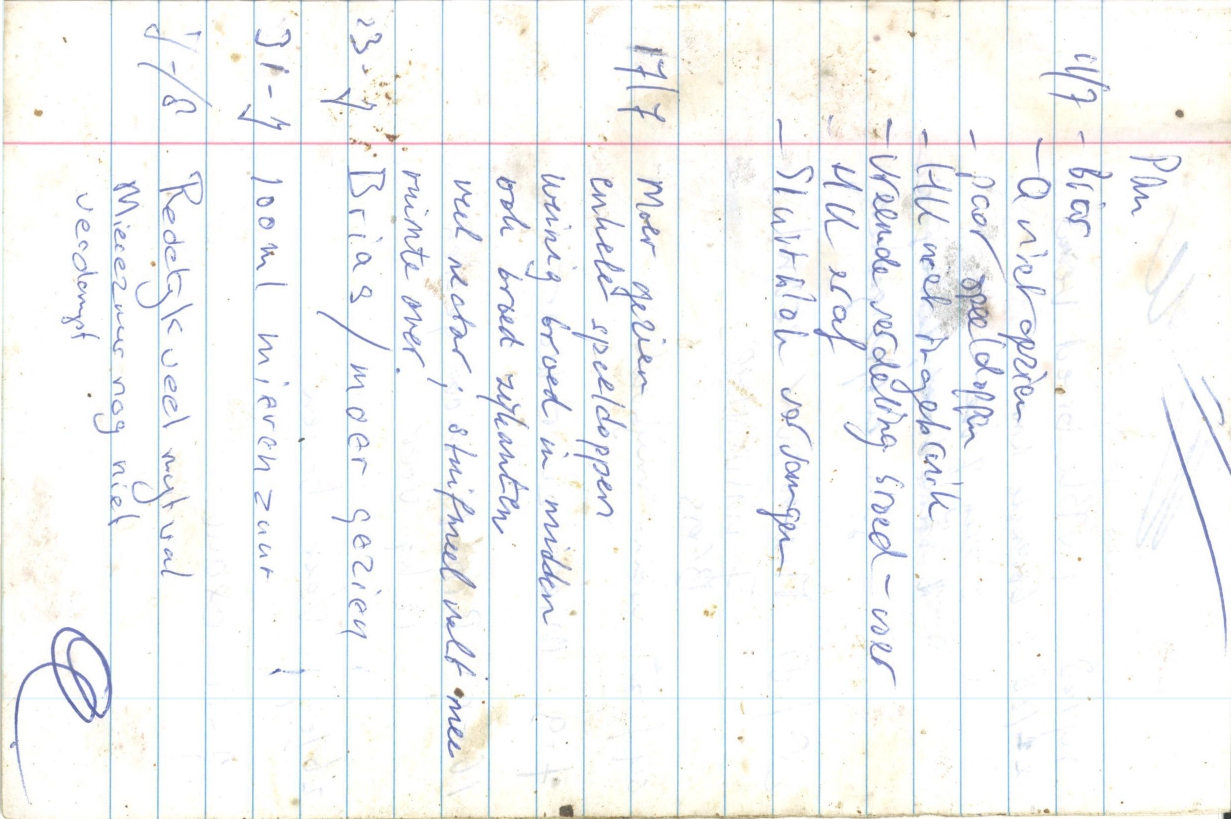 11/7 - bias
- Q niet gezien
- paar speeldoppen
- HK niet ingebruik
- Vreemde verdeling broed - voer
HK eraf
- vervangen
17/7 Moer gezien
enkele speeldoppen
weinig broed in midden
ook broed zijkanten
veel nectar, stuifmeel valt mee
ruimte over!
23-7 Brias / moer gezien
31-7 100ml mierenzuur !
7-/8 Redelijk veel mytval
Mierezuur nog niet
verdampt